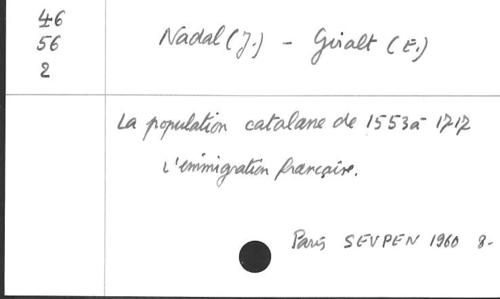 46
56
2
Nadal (J.) - Giralt (E.)
La population catalane de 1553 à 1717
L'emmigration française.
Paris SEVPEN 1960 8-